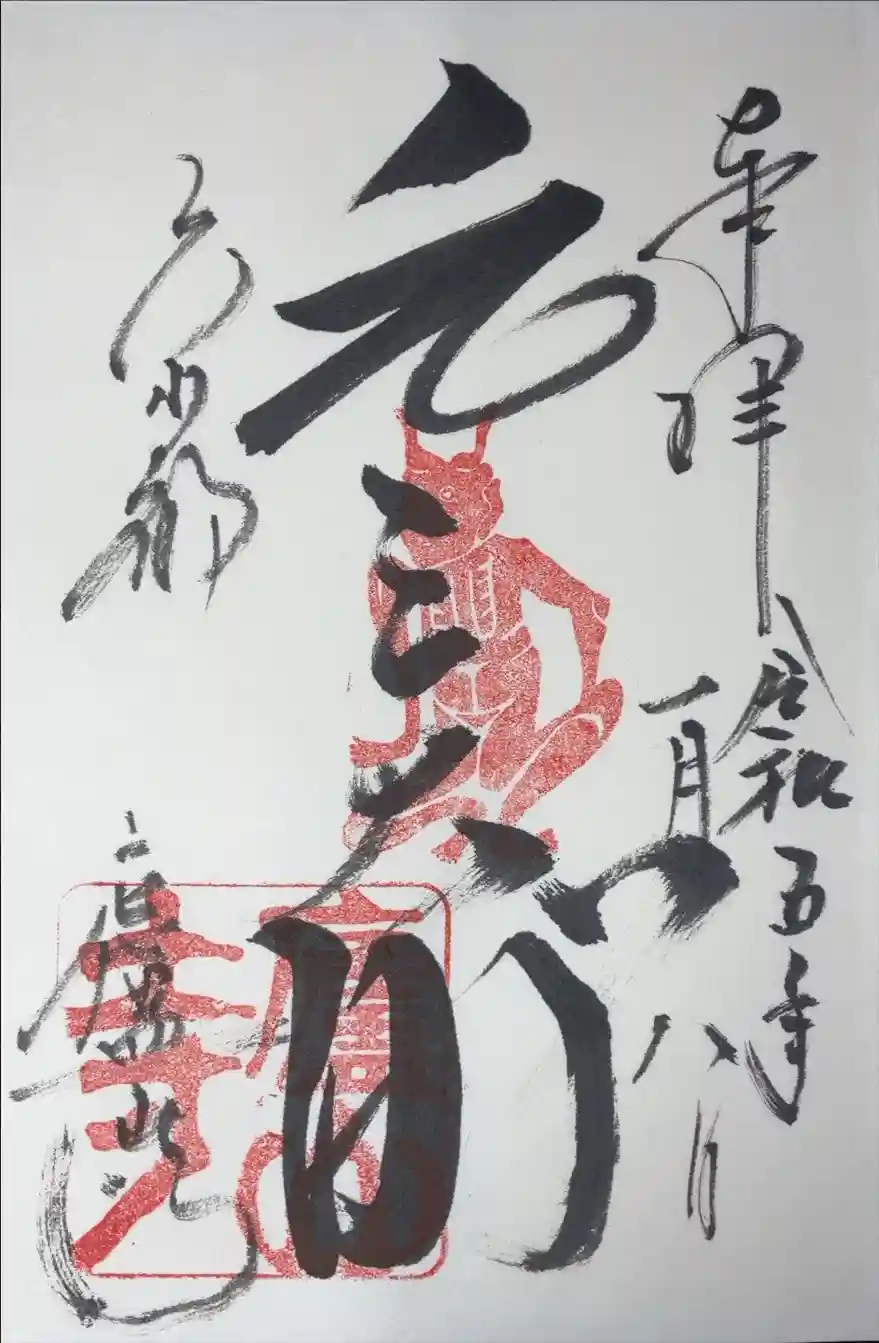 奉拝
令和五年
一月八日
元三大師
京都
廬山寺